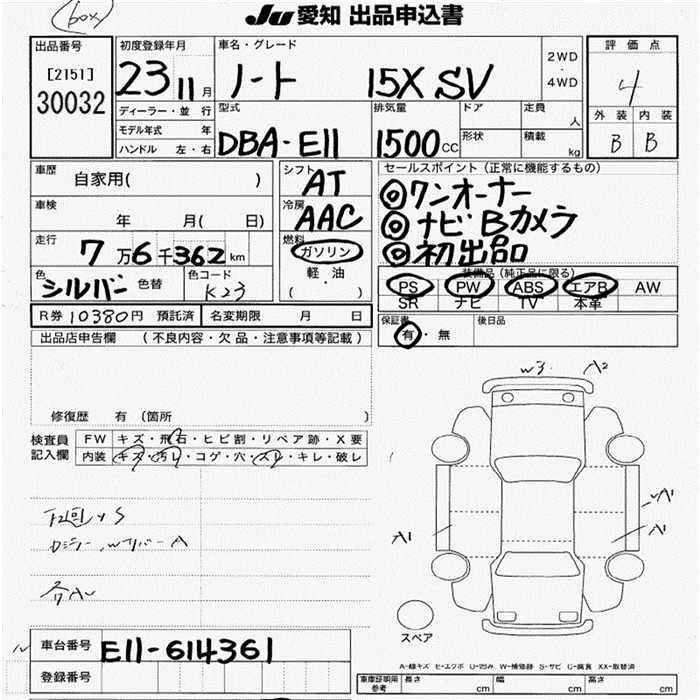 (box)
JU 愛知 出品申込書
出品番号
[2151]
30032
初度登録年月
23 11 月
車名・グレード
ノート 15X SV
2WD
・
4WD
評価点
4
外装 内装
B B
ディーラー・並行
モデル年式 年
ハンドル 左・右
型式
DBA-E11
排気量
1500 CC
ドア
形状
定員
人
積載
kg
車歴
自家用( )
車検
年 月( 日)
走行
7万6千362km
色
シルバー 色替
色コード
K23
シフト
AT
冷房
AAC
燃料
ガソリン
軽・油
( ・ )
セールスポイント(正常に機能するもの)
◎ワンオーナー
◎ナビ Bカメラ
◎初出品
装備品(純正品に限る)
PS PW ABS エアB AW
SR ナビ TV 本革
R券 10380円 預託済 名変期限 月 日
保証書
有・無
後日品
出品店申告欄 (不良内容・欠品・注意事項等記載)
修復歴 有 (箇所 )
検査員
記入欄
FW キズ・飛石・ヒビ割・リペア跡・X要
内装 キズ・汚レ・コゲ・穴・スレ・キレ・破レ
W3 A2
A1
A1
A1
スペア
車台番号 E11-614361
登録番号
A-線キズ E-エクボ U-凹み W-補修跡 S-サビ C-腐食 XX-取替済
車庫証明用
参考
長さ cm 幅 cm 高さ cm